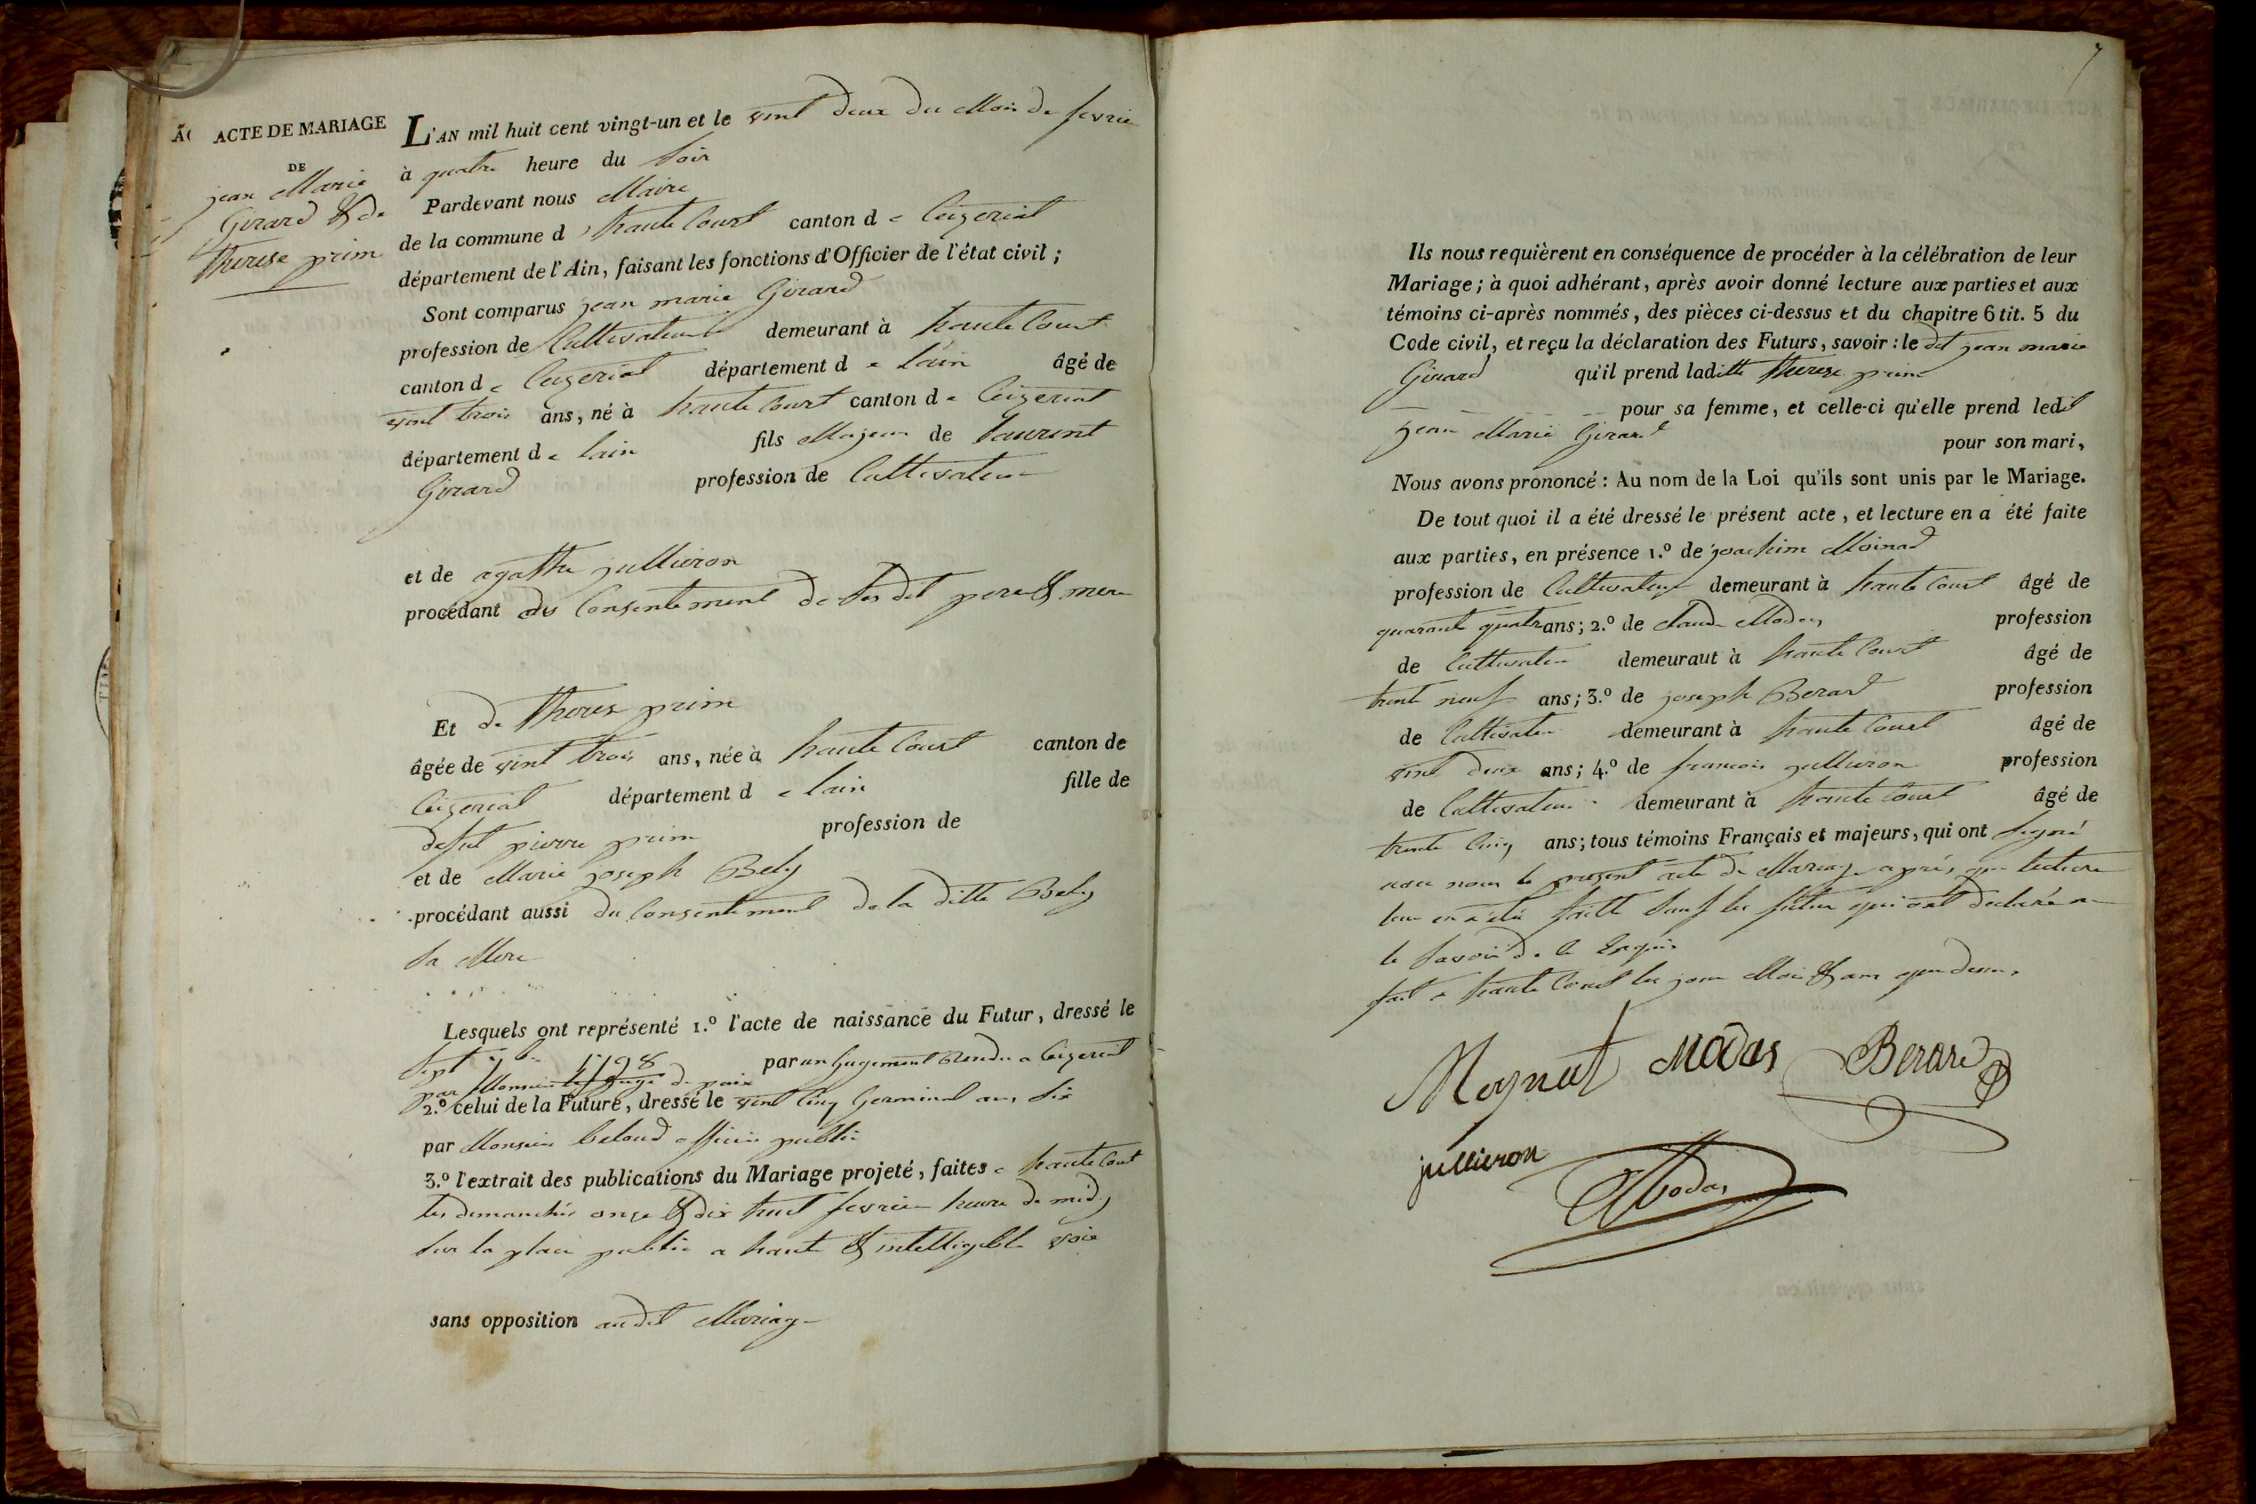 ACTE DE MARIAGE
DE
jean Marie
Girard & de
therese prim
L'AN mil huit cent vingt-un et le vint deux du Mois de fevrie
à quatre heure du Soir
Pardevant nous Maire
de la commune d'hautecourt canton de Ceizeriat
département de l'Ain, faisant les fonctions d'Officier de l'état civil ;
Sont comparus jean marie Girard
profession de Cultivateur demeurant à hautecourt
canton de Ceizeriat département de lain âgé de
vint trois ans, né à hautecourt canton de Ceizeriat
département de lain fils Majeur de laurent
Girard profession de Cultivateur
et de agathe jullieron
procédant du Consentement de ses dit pere & mere
Et de theresе prim
âgée de vint trois ans, née à hautecourt canton de
Ceizeriat département de lain fille de
defut pierre prim profession de
et de Marie joseph Bely
procédant aussi du Consentement de la ditte Bely
sa Mere
Lesquels ont représenté 1.º l'acte de naissance du Futur, dressé le
Sept 1798 par un Jugement Rendu a Ceizeriat
par Monsieur le juge de paix
2.º celui de la Future, dressé le vint Cinq Germinal an Six
par Monsieur officier public
3.º l'extrait des publications du Mariage projeté, faites a hautecourt
les dimanches onze & dix huit fevrier heure de midy
sur la place public a haute & intelligible voix
sans opposition audit Mariage
7
Ils nous requièrent en conséquence de procéder à la célébration de leur
Mariage ; à quoi adhérant, après avoir donné lecture aux parties et aux
témoins ci-après nommés, des pièces ci-dessus et du chapitre 6 tit. 5 du
Code civil, et reçu la déclaration des Futurs, savoir : le dit jean marie
Girard qu'il prend laditte therese prim
pour sa femme, et celle-ci qu'elle prend ledit
jean Marie Girard pour son mari,
Nous avons prononcé : Au nom de la Loi qu'ils sont unis par le Mariage.
De tout quoi il a été dressé le présent acte, et lecture en a été faite
aux parties, en présence 1.º de joachim Moinad
profession de Cultivateur demeurant à hautecourt âgé de
quarante quatre ans ; 2.º de claude Modas profession
de Cultivateur demeuraut à hautecourt âgé de
trente neuf ans ; 3.º de joseph Berard profession
de Cultivateur demeurant à hautecourt âgé de
vint deux ans ; 4.º de francois jullieron profession
de Cultivateur demeurant à hautecourt âgé de
trente Cinq ans ; tous témoins Français et majeurs, qui ont Signé
avec nous le present acte de Mariage après que lecture
leur en a été faitte sauf les futur qui ont declaré ne
le savoir de ce Enquis
fait a hautecourt les jour Mois & an que dessus
Moynat Modas Berard
jullieron
Modas